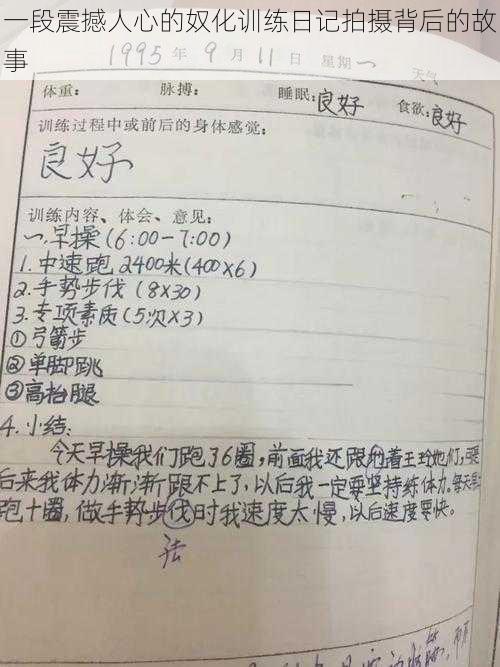 一段震撼人心的奴化训练日记拍摄背后的故
事
1995年9月11日 星期一 天气
体重： 脉搏： 睡眠：良好 食欲：良好
训练过程中或前后的身体感觉：
良好
训练内容、体会、意见：
一.早操(6:00-7:00)
1.中速跑2400米(400×6)
2.手势步伐(8×30)
3.专项素质(5次×3)
①弓箭步
②单脚跳
③高抬腿
4.小结：
今天早操我们跑了6圈,前面我还跟着王玲她们,
后来我体力渐渐跟不上了,以后我一定要坚持练体力。每天早上
跑十圈,做手势步伐时我速度太慢,以后速度要快。
法